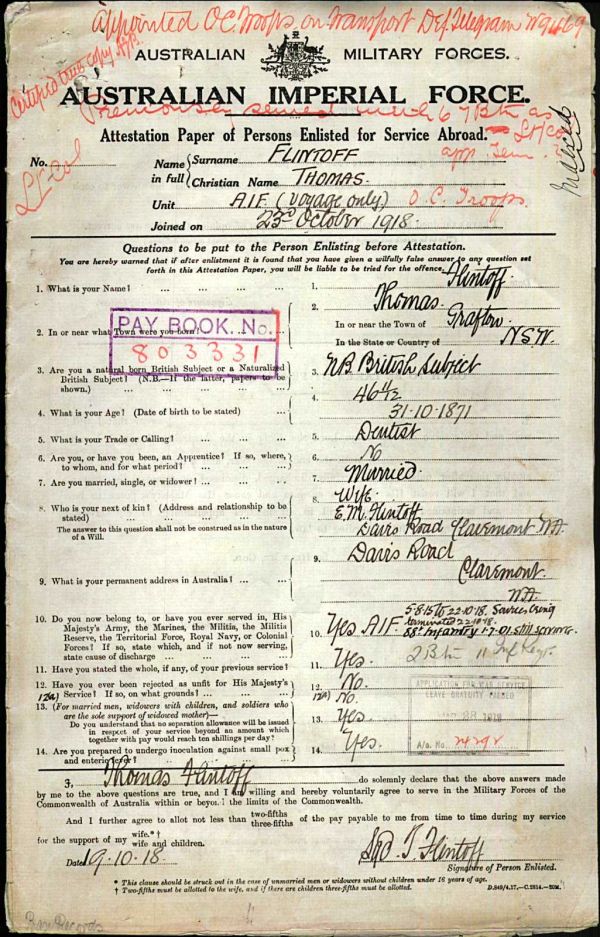 appointed O.C. Troops on Transport Def Telegram W9469
Certified true copy
AUSTRALIAN MILITARY FORCES.
AUSTRALIAN IMPERIAL FORCE.
Previously served with 67 Btn as Lt/Col
Attestation Paper of Persons Enlisted for Service Abroad.
No. Lt-Col
Name in full
Surname FLINTOFF
Christian Name THOMAS.
Unit AIF (voyage only) O.C. Troops.
Joined on 23rd October 1918.
Questions to be put to the Person Enlisting before Attestation.
You are hereby warned that if after enlistment it is found that you have given a wilfully false answer to any question set
forth in this Attestation Paper, you will be liable to be tried for the offence.
PAY BOOK. No.
803331
1. What is your Name? ... ... ... ...
1. Thomas Flintoff.
2. In or near what Town were you born? ...
2. In or near the Town of Grafton
In the State or Country of NSW.
3. Are you a natural born British Subject or a Naturalized
British Subject? (N.B.—If the latter, papers to be
shown.) ... ... ...
3. N.B. British Subject
4. What is your Age? (Date of birth to be stated) ...
4. 46 11/12
31-10-1871
5. What is your Trade or Calling? ... ... ...
5. Dentist
6. Are you, or have you been, an Apprentice? If so, where,
to whom, and for what period? ... ... ...
6. No
7. Are you married, single, or widower? ... ...
7. Married.
8. Who is your next of kin? (Address and relationship to be
stated) ... ... ... ...
The answer to this question shall not be construed as in the nature
of a Will.
8. Wife.
E.M. Flintoff
Davis Road Claremont WA.
9. What is your permanent address in Australia? ... ...
9. Davis Road
Claremont
WA.
10. Do you now belong to, or have you ever served in, His
Majesty's Army, the Marines, the Militia, the Militia
Reserve, the Territorial Force, Royal Navy, or Colonial
Forces? If so, state which, and if not now serving,
state cause of discharge ... ... ...
10. Yes AIF 5-8-15 to 22-10-18.
terminated 22-10-18.
88th Infantry 1-7-01 still serving.
11. Have you stated the whole, if any, of your previous service?
11. Yes.
12. Have you ever been rejected as unfit for His Majesty's
12(a) Service? If so, on what grounds? ... ... ...
12. No.
12(a) No.
13. (For married men, widowers with children, and soldiers who
are the sole support of widowed mother)—
Do you understand that no separation allowance will be issued
in respect of your service beyond an amount which
together with pay would reach ten shillings per day?
13. Yes.
14. Are you prepared to undergo inoculation against small pox
and enteric fever? ... ... ...
14. Yes.
APPLICATION FOR WAR SERVICE
LEAVE GRATUITY PASSED
A/o. No.
I, Thomas Flintoff do solemnly declare that the above answers made
by me to the above questions are true, and I am willing and hereby voluntarily agree to serve in the Military Forces of the
Commonwealth of Australia within or beyond the limits of the Commonwealth.
And I further agree to allot not less than two-fifths three-fifths of the pay payable to me from time to time during my service
for the support of my wife.*† wife and children.
Date 19-10-18.
Sgd. T. Flintoff
Signature of Person Enlisted.
* This clause should be struck out in the case of unmarried men or widowers without children under 16 years of age.
† Two-fifths must be allotted to the wife, and if there are children three-fifths must be allotted.
D.849/4.17.—C.2814.—20M.
Base Records